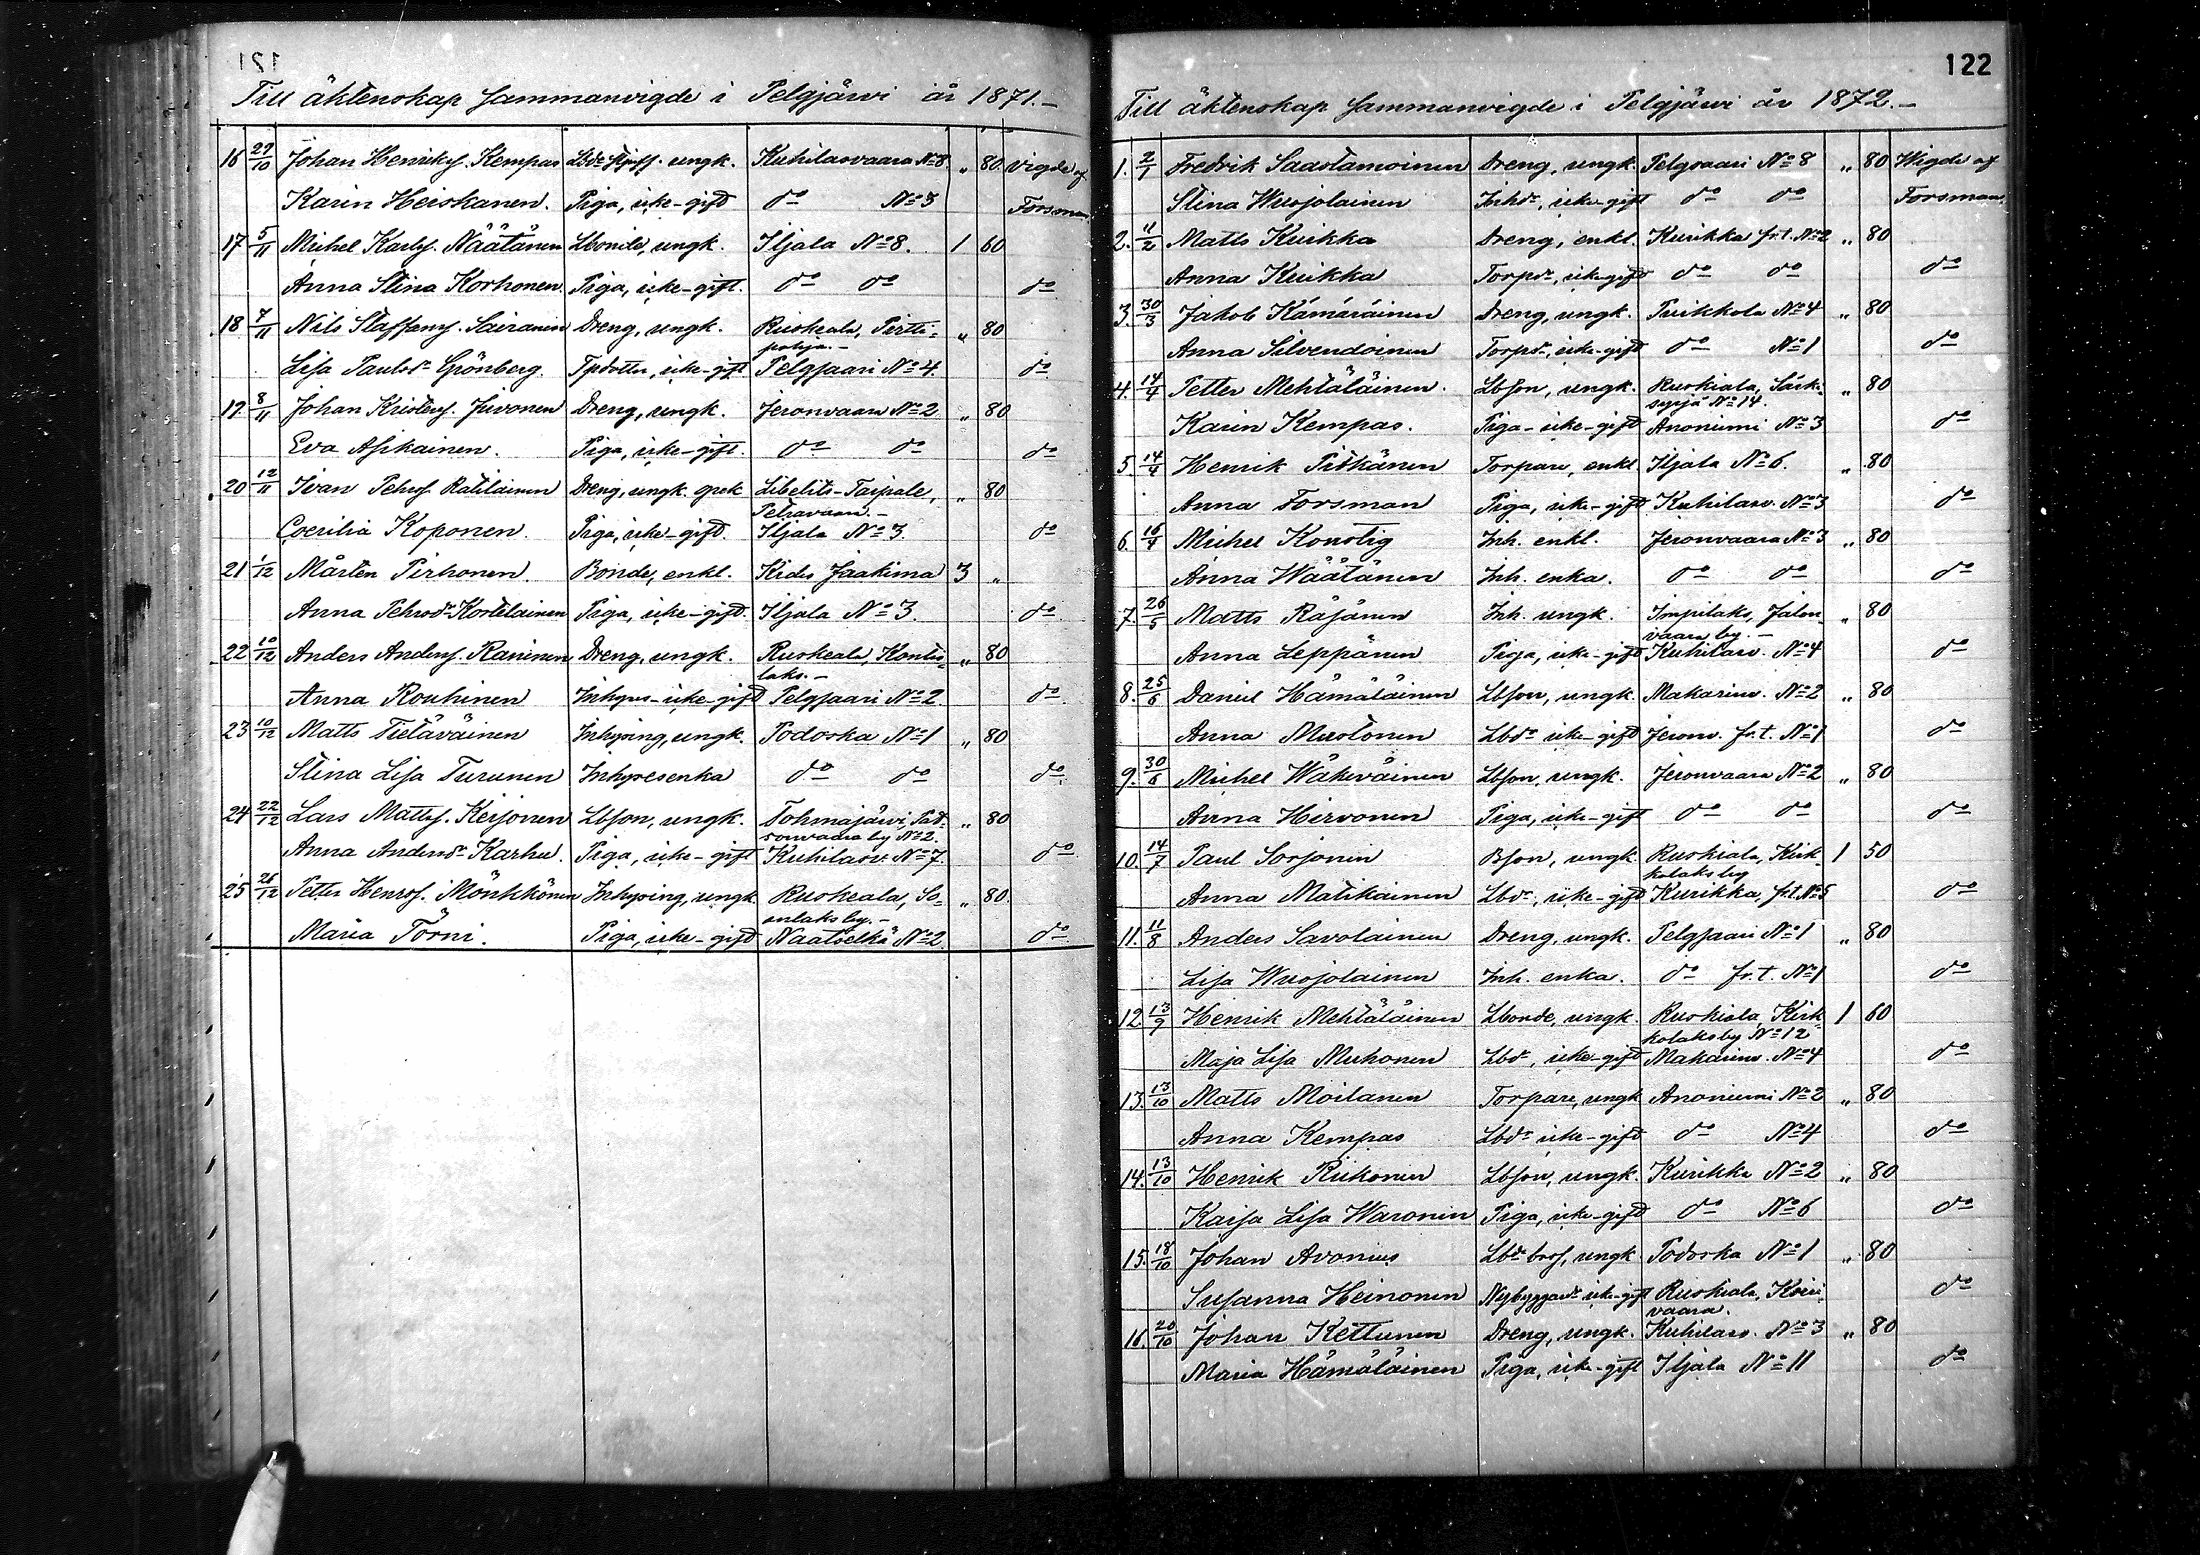 121
Till äktenskap Sammanvigde i Pelgjärvi år 1871.-
16 29/10 Johan Henriks. Kempas ungk. Kuhilasvaara No 8. „ 80. Vigde af
Karin Heiskanen. Piga, icke-gift do No 3 Forsman
17 5/11 Michel Karls. Näätänen Lbonde, ungk. Iljala No 8. 1 60
Anna Stina Korhonen. Piga, icke-gift. do do do
18 7/11 Nils Staffans. Sairanen Dreng, ungk. Ruskeala, Pirtti- „ 80
pohja.-
Lisa Paulsdr Grönberg. Tpdotter, icke-gift Pelgjaari No 4. do
19 8/11 Johan Kristers. Juvonen Dreng, ungk. Jeronvaara No 2 „ 80
Eva Asikainen. Piga, icke-gift. do do do
20 12/11 Ivan Petrof Ratilainen Dreng, ungk. grek Libelits-Taipale, „ 80
Petravaara.-
Coecilia Koponen. Piga, icke-gift. Iljala No 3. do
21 1/12 Mårten Pirhonen. Bonde, enkl. Kides Jaakima 3 „
Anna Pehrsdr Kostilainen Piga, icke-gift. Iljala No 3. do
22 10/12 Anders Anders. Raninen Dreng, ungk. Ruskeala, Kontio- „ 80
laks.-
Anna Rouhinen Inhyses-icke-gift Pelgjaari No 2. do
23 10/12 Matts Tietäväinen Inhysing, ungk. Podoska No 1 „ 80
Stina Lisa Turunen Inhysesenka do do do
24 22/12 Lars Matts. Keijonen Lbson, ungk. Tohmajärvi, Pat- „ 80
sonvaara by No 2.
Anna Andersdr Karhu. Piga, icke-gift Kuhilasv. No 7. do
25 26/12 Petter Henrs. Mönkkönen Inhysing, ungk. Ruskeala, So- „ 80.
anlaks by.-
Maria Törni. Piga, icke-gift Naatselkä No 2 do
122
Till äktenskap Sammanvigde i Pelgjärvi år 1872.-
1. 2/1 Fredrik Saastamoinen Dreng, ungk. Pelgjaari No 8 „ 80 Wigde af
Stina Wusjolainen Inhdr, icke-gift do do Forsman
2. 11/2 Matts Kuikka Dreng, enkl. Kurikka fr.t. No 2 „ 80
Anna Kuikka Torpdr, icke-gift do do do
3. 30/3 Jakob Kämäräinen Dreng, ungk. Puikkola No 4 „ 80
Anna Silvendoinen Torpdr, icke-gift do No 1 do
4. 14/4 Petter Mehtäläinen. Lbson, ungk. Ruskiala, Särk- „ 80
syrjä No 14.
Karin Kempas. Piga-icke-gift Anoniemi No 3 do
5. 14/4 Henrik Pitkänen Torpare, enkl Iljala No 6. „ 80
Anna Forsman Piga, icke-gift Kuhilasv. No 3 do
6. 16/4 Michel Konstig Inh. enkl. Jeronvaara No 3 „ 80
Anna Wäätänen Inh. enka. do do do
7. 26/5 Matts Räsänen Inh. ungk. Impilaks, Jalon- „ 80
vaara by.-
Anna Leppänen Piga, icke-gift Kuhilasv. No 4 do
8. 25/6 Daniel Hämäläinen Lbson, ungk. Makarinv. No 2 „ 80
Anna Mustonen Lbdr icke-gift Jeronv. fr.t. No 1 do
9. 30/6 Michel Wäkeväinen Lbson, ungk. Jeronvaara No 2 „ 80
Anna Hirvonen Piga, icke-gift do do do
10. 14/7 Paul Sorjonen Bson, ungk Ruskiala, Kirk- 1 50
kolaks by
Anna Matikainen Lbdr, icke-gift Kurikka, fr.t. No 5 do
11. 11/8 Anders Savolainen Dreng, ungk. Pelgjaari No 1 „ 80
Lisa Wusjolainen Inh. enka. do fr.t. No 1 do
12. 13/9 Henrik Mehtäläinen Lbonde, ungk. Ruskiala, Kirk- 1 60
kolaks by No 12
Maja Lisa Muhonen Lbdr, icke-gift Makarinv. No 4 do
13. 13/10 Matts Moilanen Torpare, ungk Anoniemi No 2 „ 80
Anna Kempas Lbdr icke-gift do No 4 do
14. 13/10 Henrik Riikonen Lbson, ungk. Kurikka No 2 „ 80
Kaisa Lisa Waronen Piga, icke-gift do No 6 do
15. 18/10 Johan Avonius Lbdr brs, ungk Podoska No 1 „ 80
Susanna Heinonen Nybyggardr icke-gift Ruskiala, Koiri-
vaara. do
16. 20/10 Johan Kettunen Dreng, ungk. Kuhilasv. No 3 „ 80
Maria Hämäläinen Piga, icke-gift Iljala No 11 do